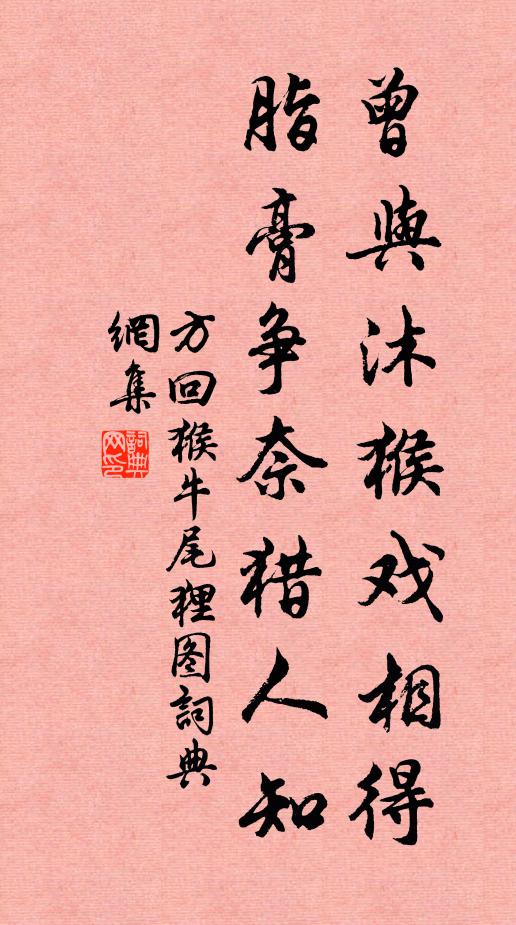 曾與沐猴戏相得
脂膏争奈猎人知
方回猴牛尾狸图詞典
網集
詞典网印